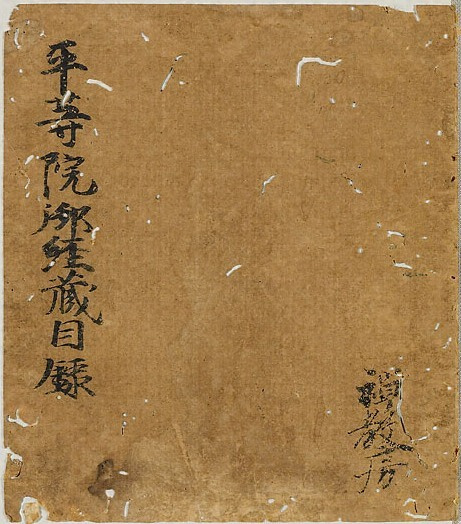 平等院御経蔵目録
禅教房